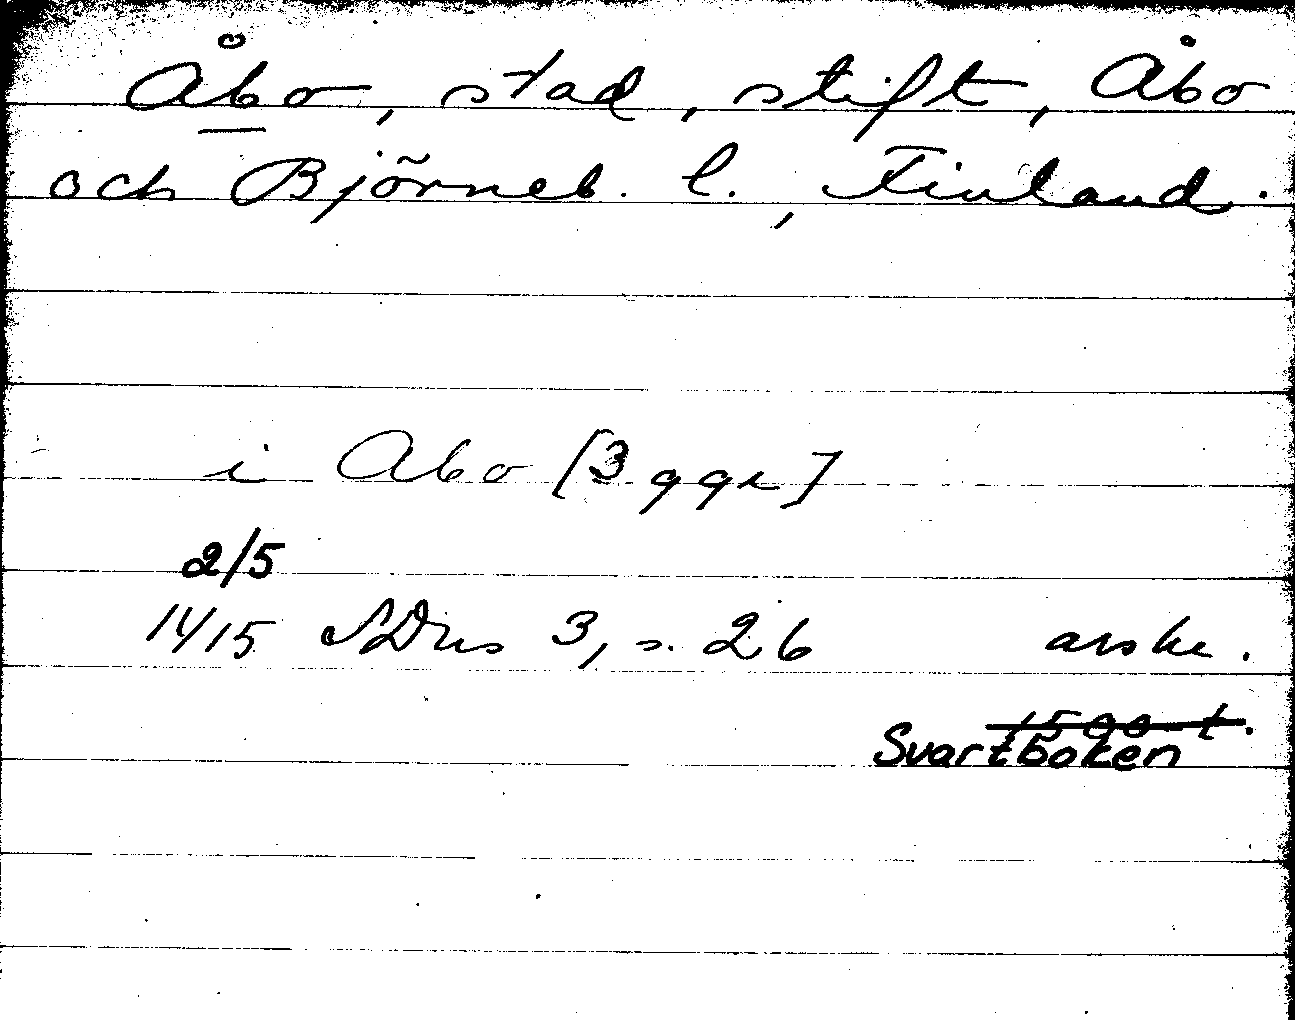 Åbo, stad, stift, Åbo
och Björneb. l., Finland.
i Abo [3 ggr]
2/5
1415 SDns 3, s. 26 avskr.
1500-t.
Svartboken